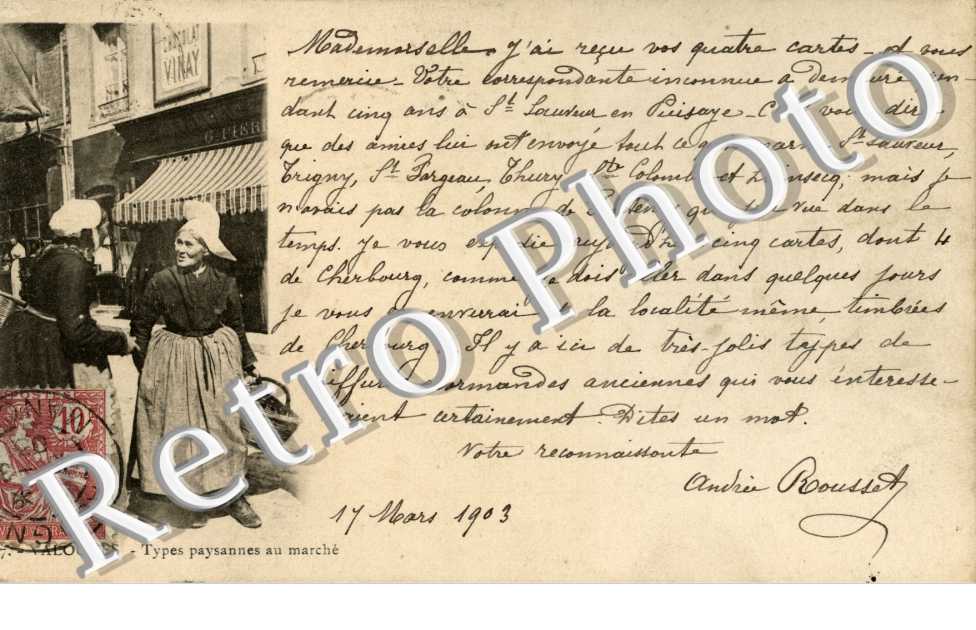 CHOCOLAT
VINAY
G. PIER
Mademoiselle. J'ai reçu vos quatre cartes - et vous
remercie - Votre correspondante inconnue a demeuré pen
dant cinq ans à St Sauveur en Puisaye - vous dire
que des amies lui ont envoyé tout ce St Sauveur,
Trigny, St Fargeau, Thury, Ste Colombe et mais je
n'avais pas la colonne de vue dans le
temps. Je vous expédie aujourd'hui cinq cartes, dont 4
de Cherbourg, comme je dois aller dans quelques jours
je vous enverrai la localité même, timbrées
de Cherbourg. Il y a ici de très-jolis types de
coiffures normandes anciennes qui vous intéresse-
raient certainement. Dites un mot.
Votre reconnaissante
Andrée Rousset
17 Mars 1903
10
7. - VALOGNES - Types paysannes au marché
Retro Photo
Retro Photo